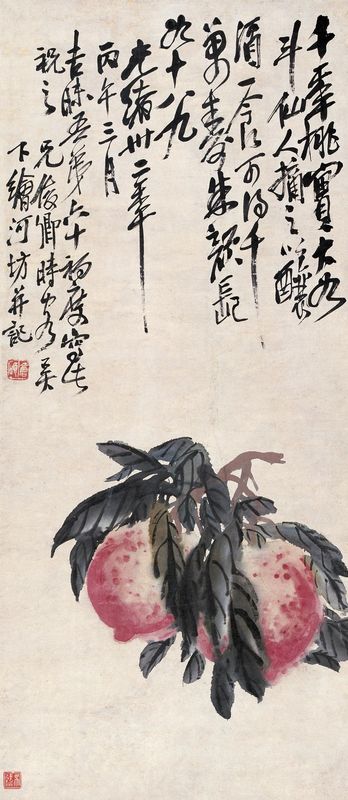 千年桃實大如
斗仙人摘之以釀
酒一食可得千
萬壽朱顏長
如十八九
光緒卅二年
丙午三月
五弟六十初度寫此
祝之 兄俊卿時 吳
下繪河坊并記